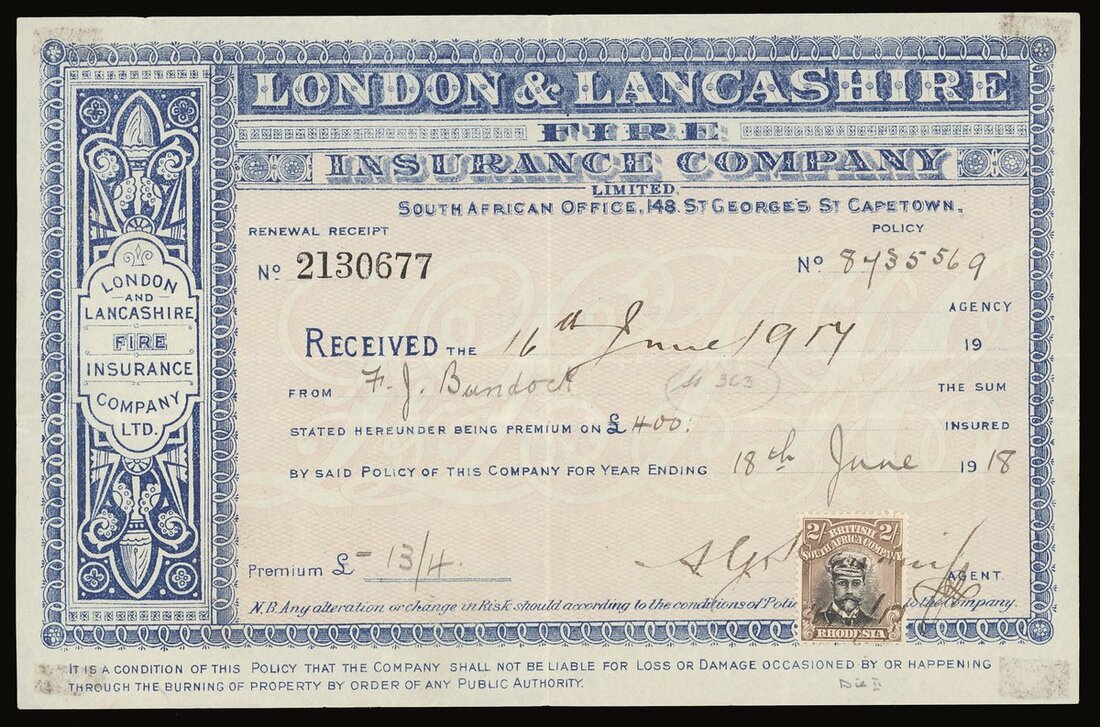 LONDON & LANCASHIRE
FIRE
INSURANCE COMPANY
LIMITED.
SOUTH AFRICAN OFFICE, 148. ST GEORGE'S ST CAPETOWN.
LONDON
AND
LANCASHIRE
FIRE
INSURANCE
COMPANY
LTD.
RENEWAL RECEIPT
POLICY
No 2130677
No 8435569
AGENCY
RECEIVED THE 16th June 1917 19
FROM F. J. Bundock 303 THE SUM
STATED HEREUNDER BEING PREMIUM ON £400: INSURED
BY SAID POLICY OF THIS COMPANY FOR YEAR ENDING 18th June 1918
Premium £ - 13/4.
AGENT.
N.B. Any alteration or change in Risk should according to the conditions of to the Company.
2/- BRITISH 2/-
SOUTH AFRICA COMPANY
RHODESIA
IT IS A CONDITION OF THIS POLICY THAT THE COMPANY SHALL NOT BE LIABLE FOR LOSS OR DAMAGE OCCASIONED BY OR HAPPENING
THROUGH THE BURNING OF PROPERTY BY ORDER OF ANY PUBLIC AUTHORITY.
Die II